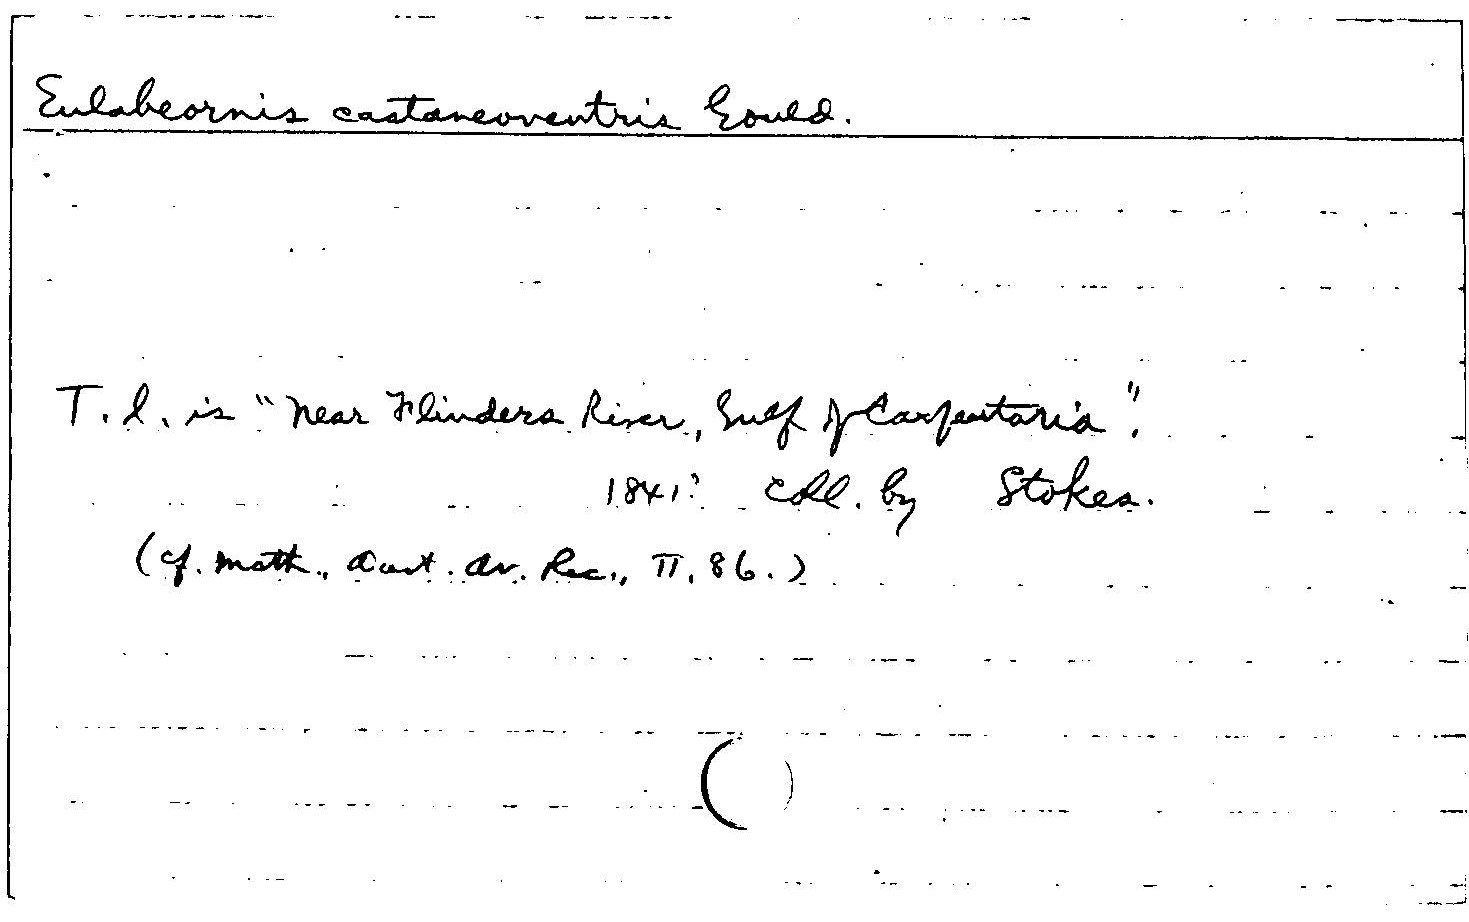 Eulabeornis castaneoventris Gould.
T. l. is "near Flinders River, Gulf of Carpentaria".
1841? Coll. by Stokes.
(cf. Math., Aust. Av. Rec., II, 86.)